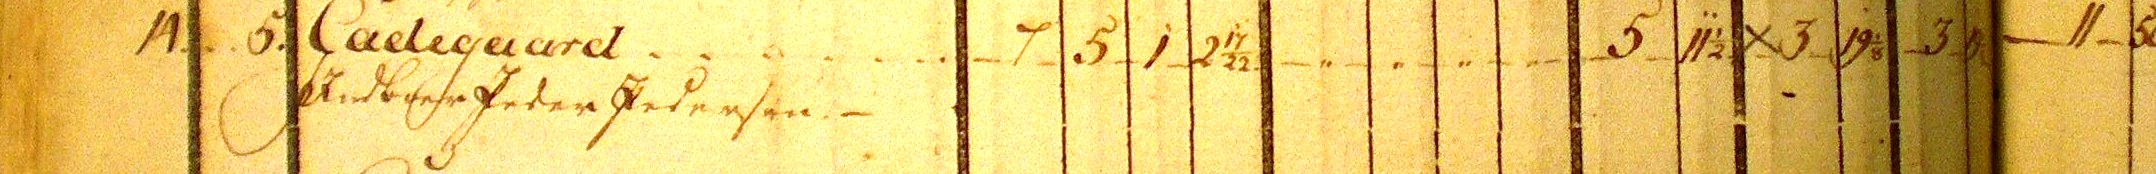 14. 5. Ladegaard - - - - - 7 5 1 2 17/22 - " - " - " - 5 11 1/2 × 3 19 1/8 3 11
Indboer Peder Pedersen. -